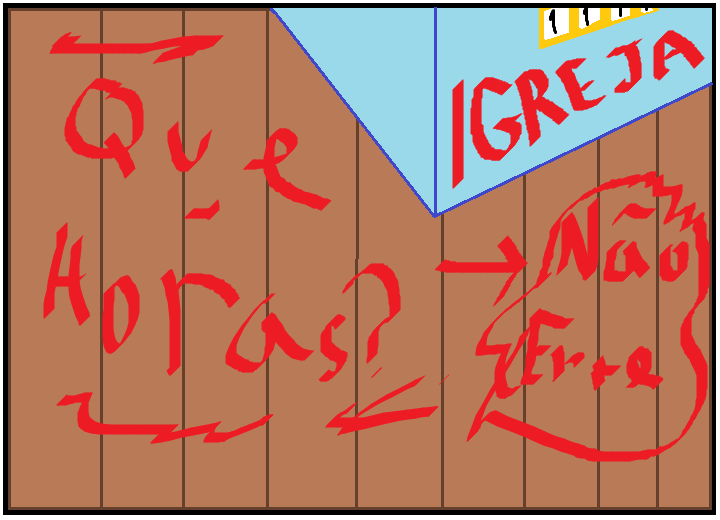 1 1 1 1
IGREJA
Que
Horas?
Não
Erre